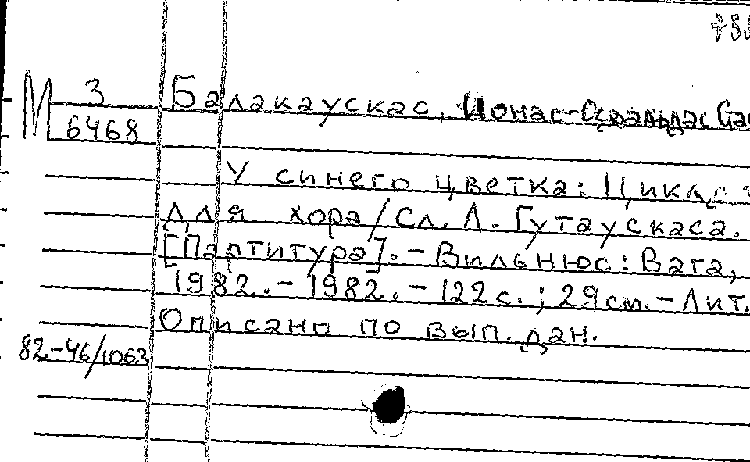 М 3
6468
Балакаускас, Ионас-Освальдас
У синего цветка: Цикл
для хора/Сл. Л. Гутаускаса.
[Партитура]. – Вильнюс: Вага,
1982. – 1982. – 122 с.; 29 см. – Лит.
Описано по вып. дан.
82-46/1063